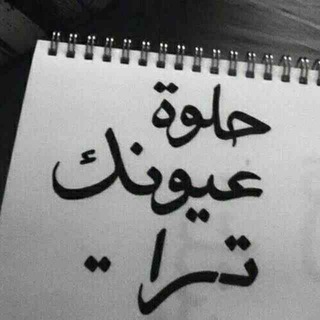 حلوة
عيونك
ترا..